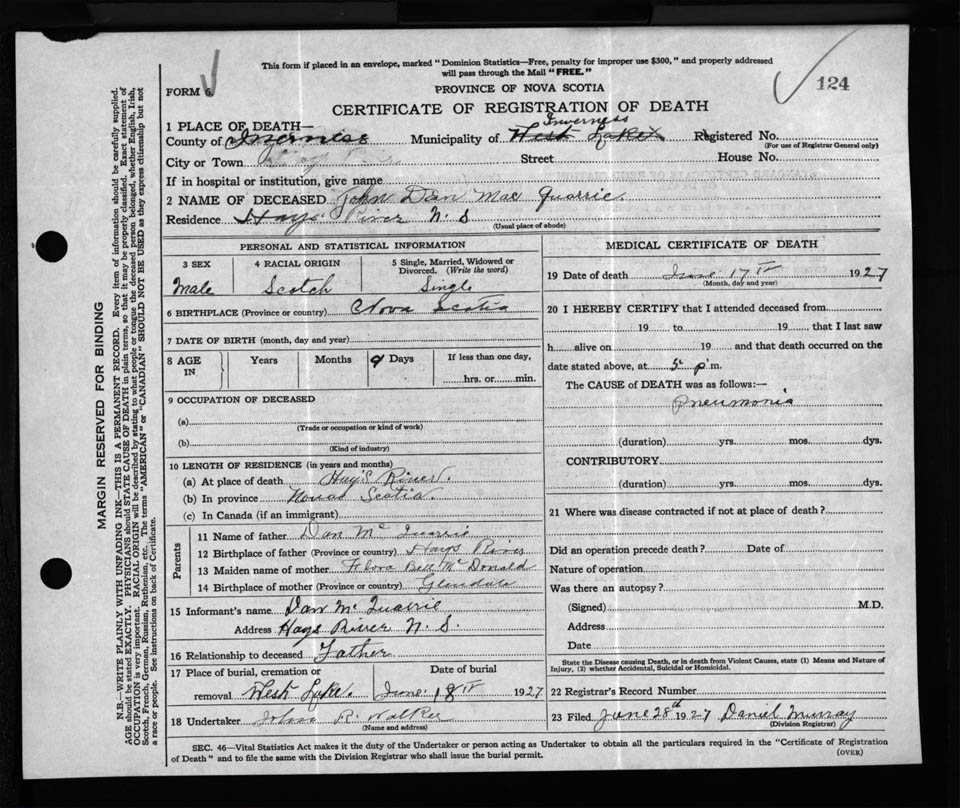 This form if placed in an envelope, marked "Dominion Statistics—Free, penalty for improper use $300," and properly addressed
will pass through the Mail "FREE."
FORM 6.
PROVINCE OF NOVA SCOTIA
124
CERTIFICATE OF REGISTRATION OF DEATH
1 PLACE OF DEATH—
Inverness
County of Inverness Municipality of West Lake Registered No.
(For use of Registrar General only)
City or Town Street House No.
If in hospital or institution, give name
2 NAME OF DECEASED John Dan Mac Quarrie
Residence Hays River N. S
(Usual place of abode)
PERSONAL AND STATISTICAL INFORMATION
3 SEX 4 RACIAL ORIGIN 5 Single, Married, Widowed or
Divorced. (Write the word)
Male Scotch Single
6 BIRTHPLACE (Province or country) Nova Scotia
7 DATE OF BIRTH (month, day and year)
8 AGE IN Years Months 9 Days If less than one day,
hrs. or min.
9 OCCUPATION OF DECEASED
(a)
(Trade or occupation or kind of work)
(b)
(Kind of industry)
10 LENGTH OF RESIDENCE (in years and months)
(a) At place of death Hay's River.
(b) In province Novas Scotia.
(c) In Canada (if an immigrant)
Parents
11 Name of father Dan Mc Quarrie
12 Birthplace of father (Province or country) Hays River
13 Maiden name of mother Flora Bell McDonald
14 Birthplace of mother (Province or country) Glendale
15 Informant's name Dan Mc Quarrie
Address Hays River N. S.
16 Relationship to deceased Father
17 Place of burial, cremation or Date of burial
removal West Lake June 18th 1927
18 Undertaker John R. Walker
(Name and address)
MEDICAL CERTIFICATE OF DEATH
19 Date of death June 17th 1927
(Month, day and year)
20 I HEREBY CERTIFY that I attended deceased from
19 to 19, that I last saw
h alive on 19 and that death occurred on the
date stated above, at 5 p m.
The CAUSE of DEATH was as follows:—
Pneumonia
(duration) yrs. mos. dys.
CONTRIBUTORY
(duration) yrs. mos. dys.
21 Where was disease contracted if not at place of death?
Did an operation precede death? Date of
Nature of operation
Was there an autopsy?
(Signed) M.D.
Address
Date
State the Disease causing Death, or in death from Violent Causes, state (1) Means and Nature of
Injury, (2) whether Accidental, Suicidal or Homicidal.
22 Registrar's Record Number
23 Filed June 28th 1927 Daniel Murray
(Division Registrar)
SEC. 46—Vital Statistics Act makes it the duty of the Undertaker or person acting as Undertaker to obtain all the particulars required in the "Certificate of Registration
of Death" and to file the same with the Division Registrar who shall issue the burial permit.
(OVER)
MARGIN RESERVED FOR BINDING
N.B.—WRITE PLAINLY WITH UNFADING INK—THIS IS A PERMANENT RECORD. Every item of information should be carefully supplied.
AGE should be stated EXACTLY. PHYSICIANS should STATE CAUSE OF DEATH in plain terms, so that it may be properly classified. Exact statement of
OCCUPATION is very important. RACIAL ORIGIN will be described by stating to what people or tongue the deceased person belonged, whether English, Irish,
Scotch, French, German, Russian, Ruthenian, etc. The terms "AMERICAN" or "CANADIAN" SHOULD NOT BE USED as they express citizenship but not
a race or people. See instructions on back of Certificate.